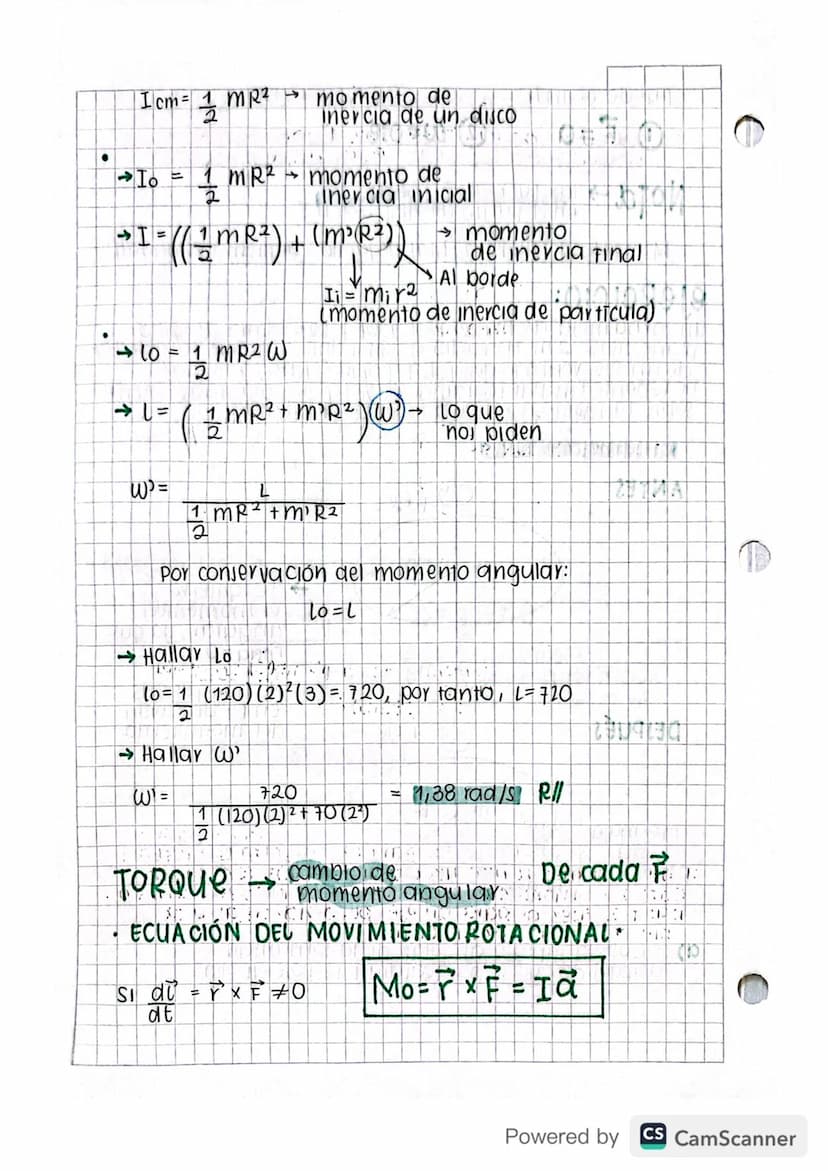 Icm = 1/2 mR² → momento de
inercia de un disco
• → Io = 1/2 mR² → momento de
inercia inicial
→ I = ((1/2 mR²) + (m'R²)) → momento
de inercia final
Al borde
Ii = mi r²
(momento de inercia de partícula)
• → lo = 1/2 mR² ω
→ l = (1/2 mR² + m'R²)(ω') → lo que
nos piden
ω' = L / (1/2 mR² + m'R²)
Por conservación del momento angular:
lo = L
→ Hallar Lo
lo = 1/2 (120)(2)²(3) = 720, por tanto, L = 720
→ Hallar ω'
ω' = 720 / (1/2 (120)(2)² + 70(2²)) = 1,38 rad/s R//
TORQUE → cambio de
momento angular
De cada F⃗
· ECUACIÓN DEL MOVIMIENTO ROTACIONAL ·
Si dl⃗/dt = r⃗ x F⃗ ≠ 0
Mo = r⃗ x F⃗ = Ia⃗
Powered by CS CamScanner